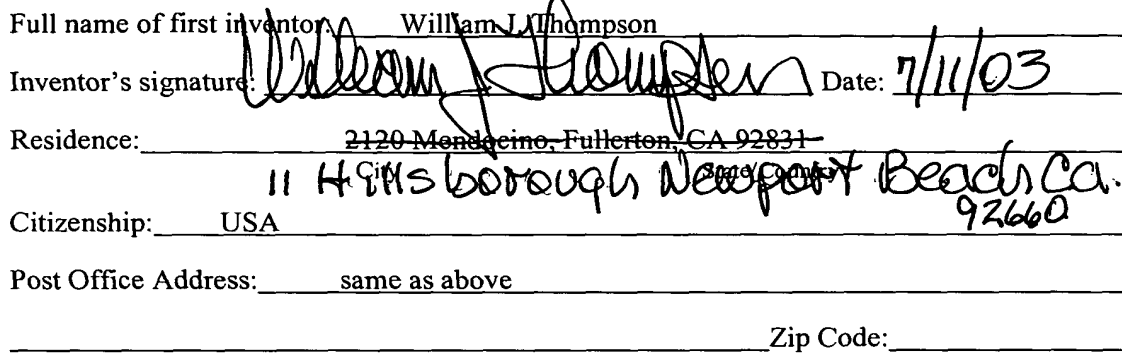 Full name of first inventor: William J. Thompson
Inventor's signature: William J Thompson Date: 7/11/03
Residence: 2120 Mendocino, Fullerton, CA 92831
City State/Country
11 Hillsborough Newport Beach Ca.
92660
Citizenship: USA
Post Office Address: same as above
Zip Code: